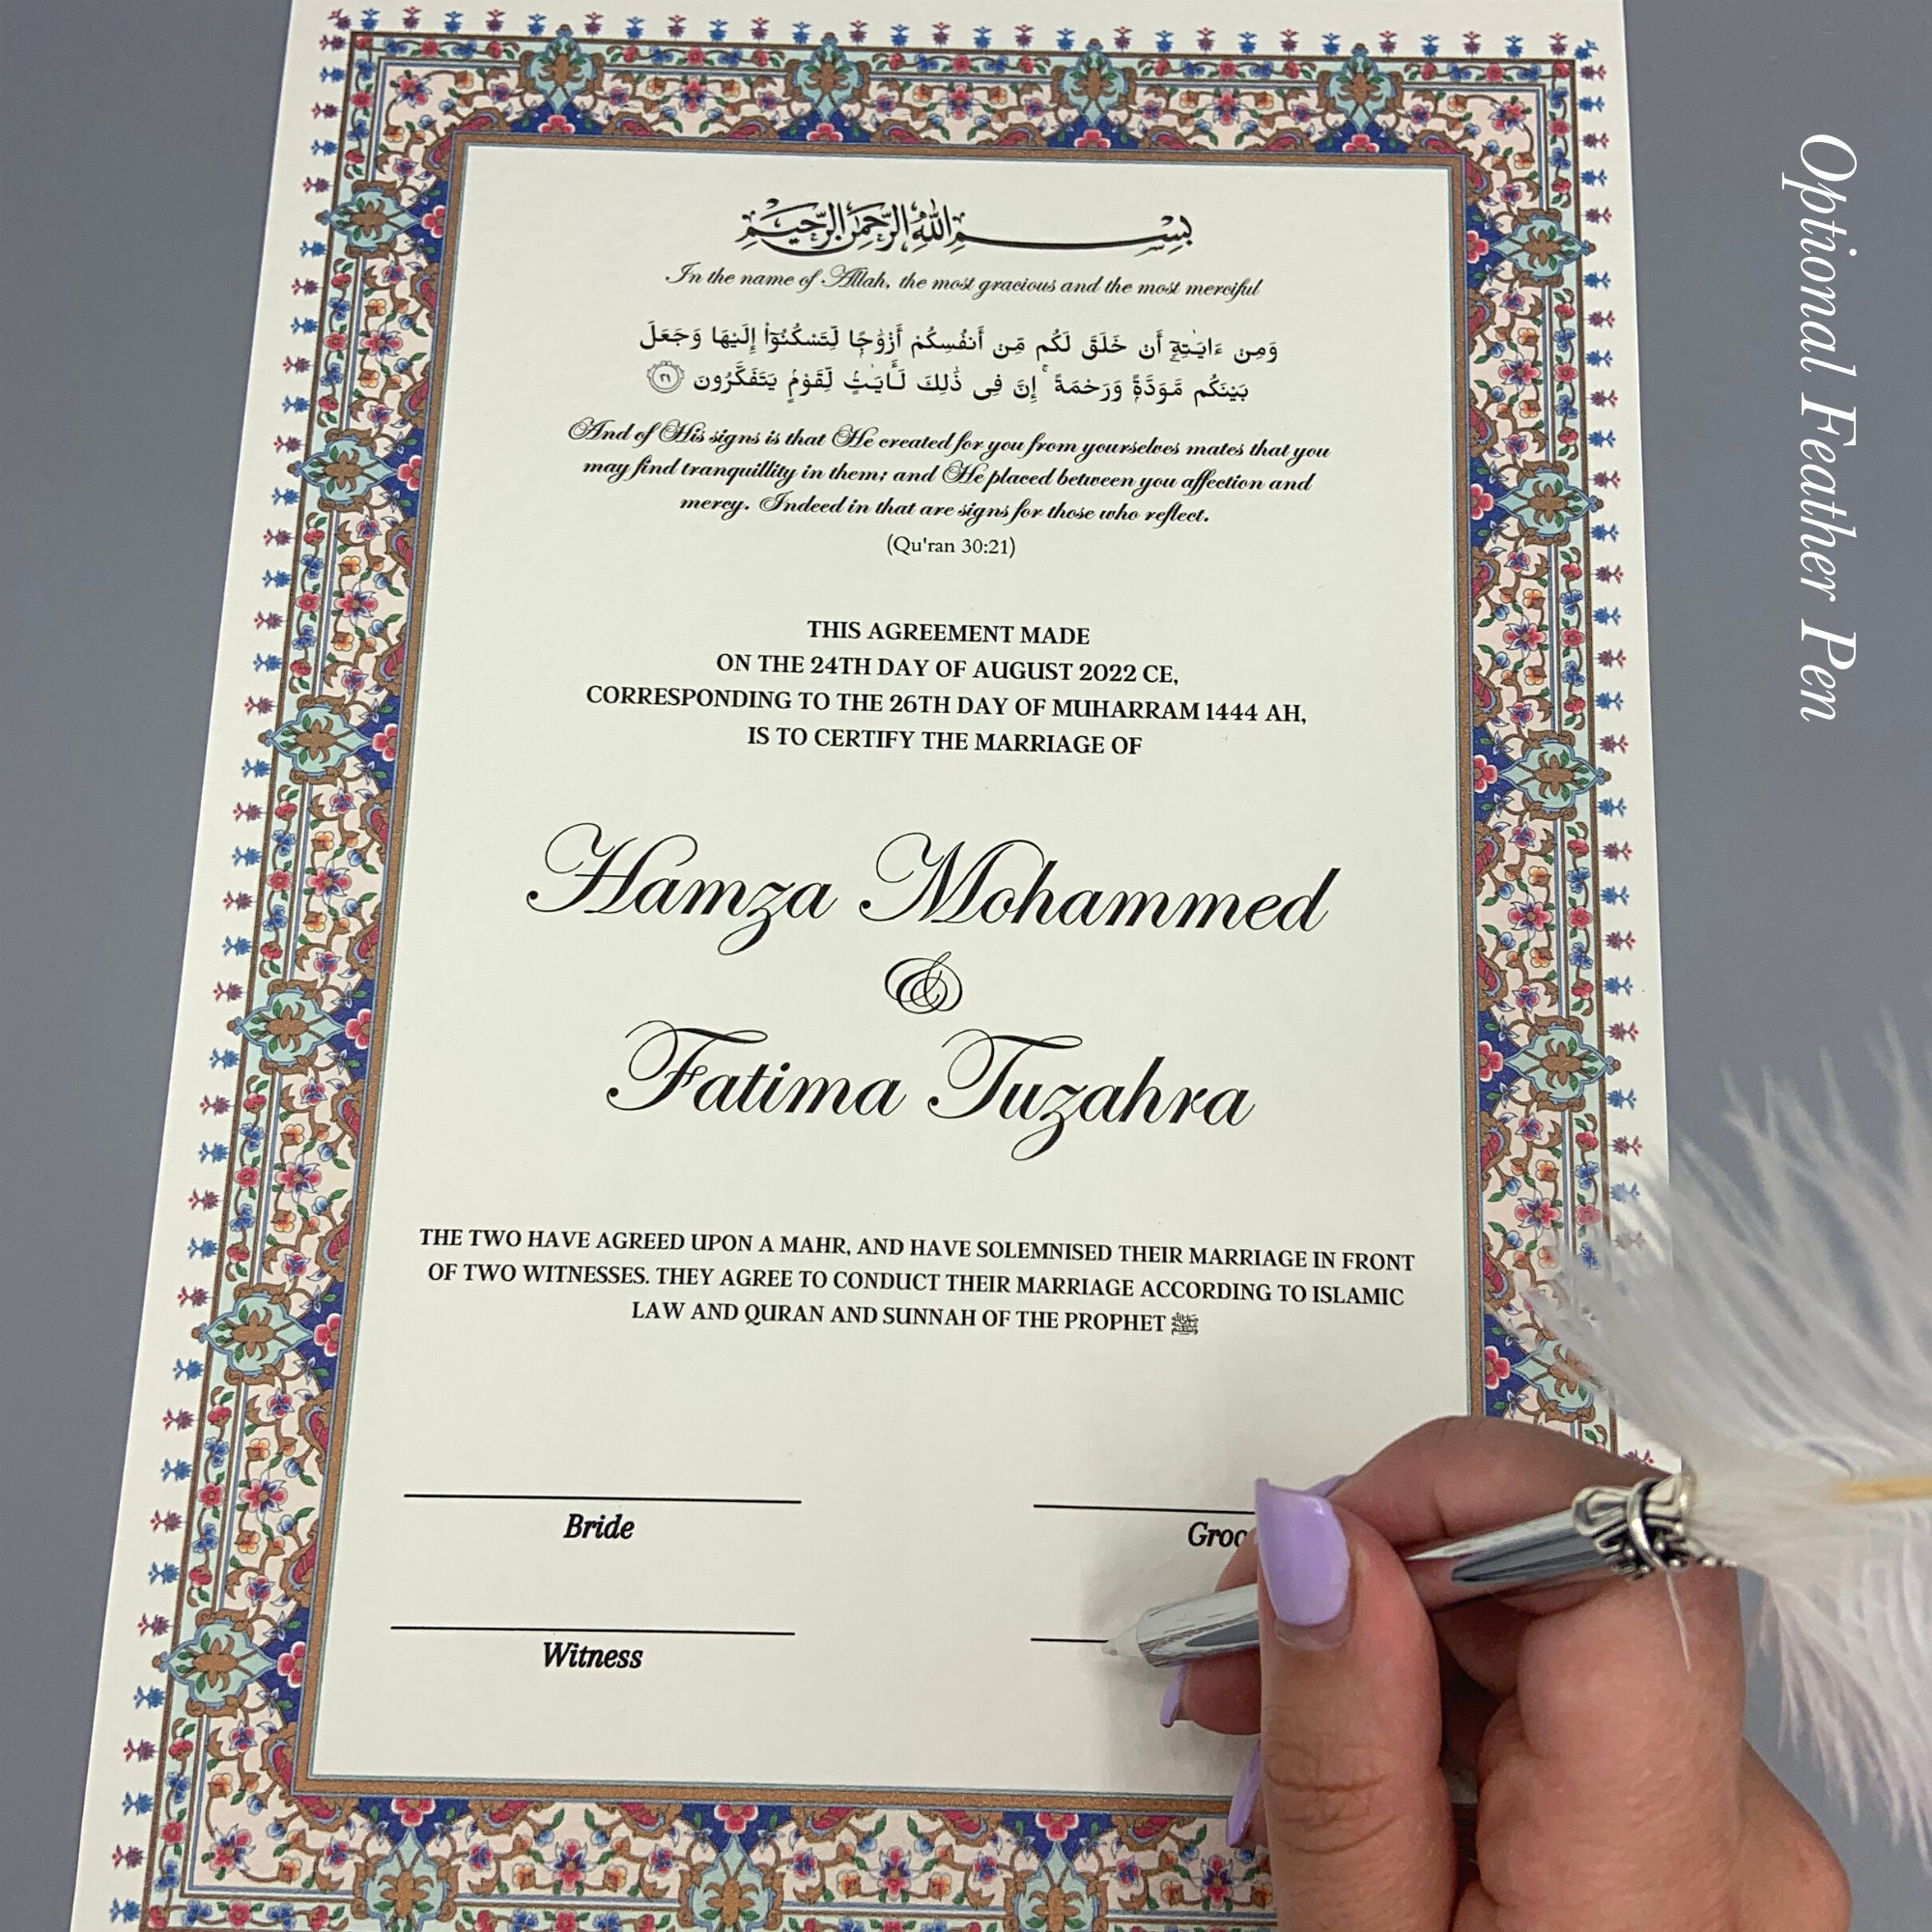 بِسْمِ اللهِ الرَّحْمٰنِ الرَّحِيْمِ
In the name of Allah, the most gracious and the most merciful
وَمِنْ ءَايَـٰتِهِۦٓ أَنْ خَلَقَ لَكُم مِّنْ أَنفُسِكُمْ أَزْوَٰجًا لِّتَسْكُنُوٓا۟ إِلَيْهَا وَجَعَلَ
بَيْنَكُم مَّوَدَّةً وَرَحْمَةً ۚ إِنَّ فِى ذَٰلِكَ لَـَٔايَـٰتٍ لِّقَوْمٍ يَتَفَكَّرُونَ ٢١
And of His signs is that He created for you from yourselves mates that you
may find tranquillity in them; and He placed between you affection and
mercy. Indeed in that are signs for those who reflect.
(Qu'ran 30:21)
THIS AGREEMENT MADE
ON THE 24TH DAY OF AUGUST 2022 CE,
CORRESPONDING TO THE 26TH DAY OF MUHARRAM 1444 AH,
IS TO CERTIFY THE MARRIAGE OF
Hamza Mohammed
&
Fatima Tuzahra
THE TWO HAVE AGREED UPON A MAHR, AND HAVE SOLEMNISED THEIR MARRIAGE IN FRONT
OF TWO WITNESSES. THEY AGREE TO CONDUCT THEIR MARRIAGE ACCORDING TO ISLAMIC
LAW AND QURAN AND SUNNAH OF THE PROPHET ﷺ
Bride
Groo
Witness
Optional Feather Pen